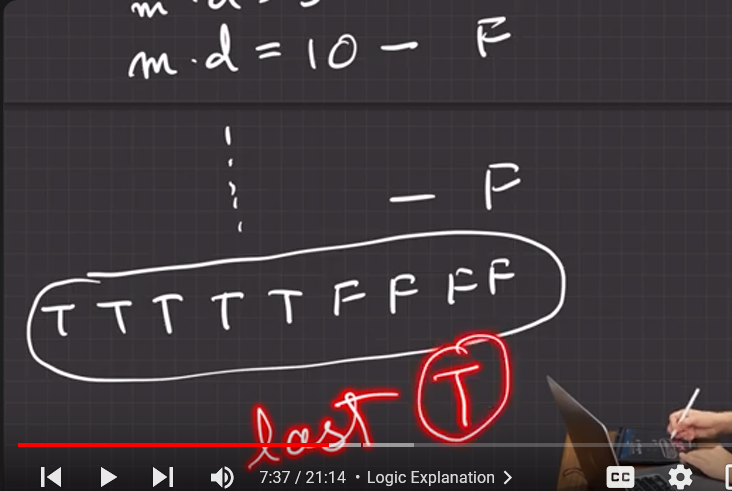 m.d = 10 - F
- F
T T T T T F F F F
last T
7:37 / 21:14 • Logic Explanation >
CC